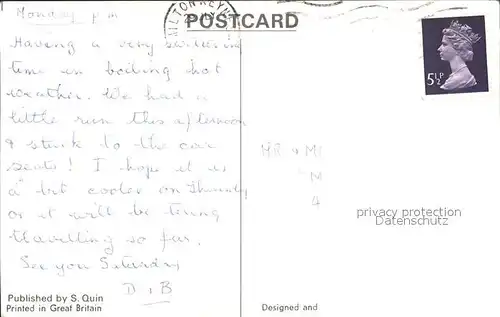 Monday p m
MILTON KEYN
POSTCARD
Having a very
time in boiling hot
weather. We had a
little run this afternoon
& stuck to the car
seats! I hope it is
a bit cooler on Thursday
or it will be tiring
travelling so far.
See you Saturday
D & B
5½P
MR & M
M
4
privacy protection
Datenschutz
Published by S. Quin
Printed in Great Britain
Designed and